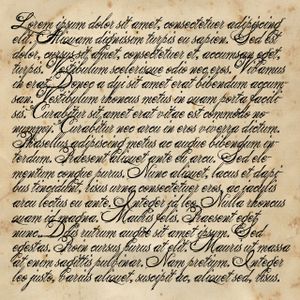 Lorem ipsum dolor sit amet, consectetuer adipiscing
elit. Aliquam dignissim turpis eu sapien. Sed est
dolor, cursus sit amet, consectetuer et, accumsan eget,
turpis. Vestibulum scelerisque odio nec eros. Vivamus
in erat. Donec a dui sit amet erat bibendum accum-
san. Vestibulum rhoncus metus in quam porta facili-
sis. Curabitur sit amet erat vitae est commodo no-
nummy. Curabitur nec arcu in eros viverra dictum.
Phasellus adipiscing metus ac augue bibendum in-
terdum. Praesent aliquet ante eu arcu. Sed ele-
mentum congue purus. Nunc aliquam, lacus et dapi-
bus tincidunt, risus urna consectetuer eros, ac iaculis
arcu lectus eu ante. Integer id leo. Nulla rhoncus
quam id magna. Mauris felis. Praesent eget
nunc. Duis rutrum augue sit amet ipsum. Sed
egestas. Proin cursus purus at elit. Mauris ut massa
at enim sagittis pulvinar. Nam pretium. Integer
leo justo, iaculis aliquet, suscipit ac, aliquet sed, risus.